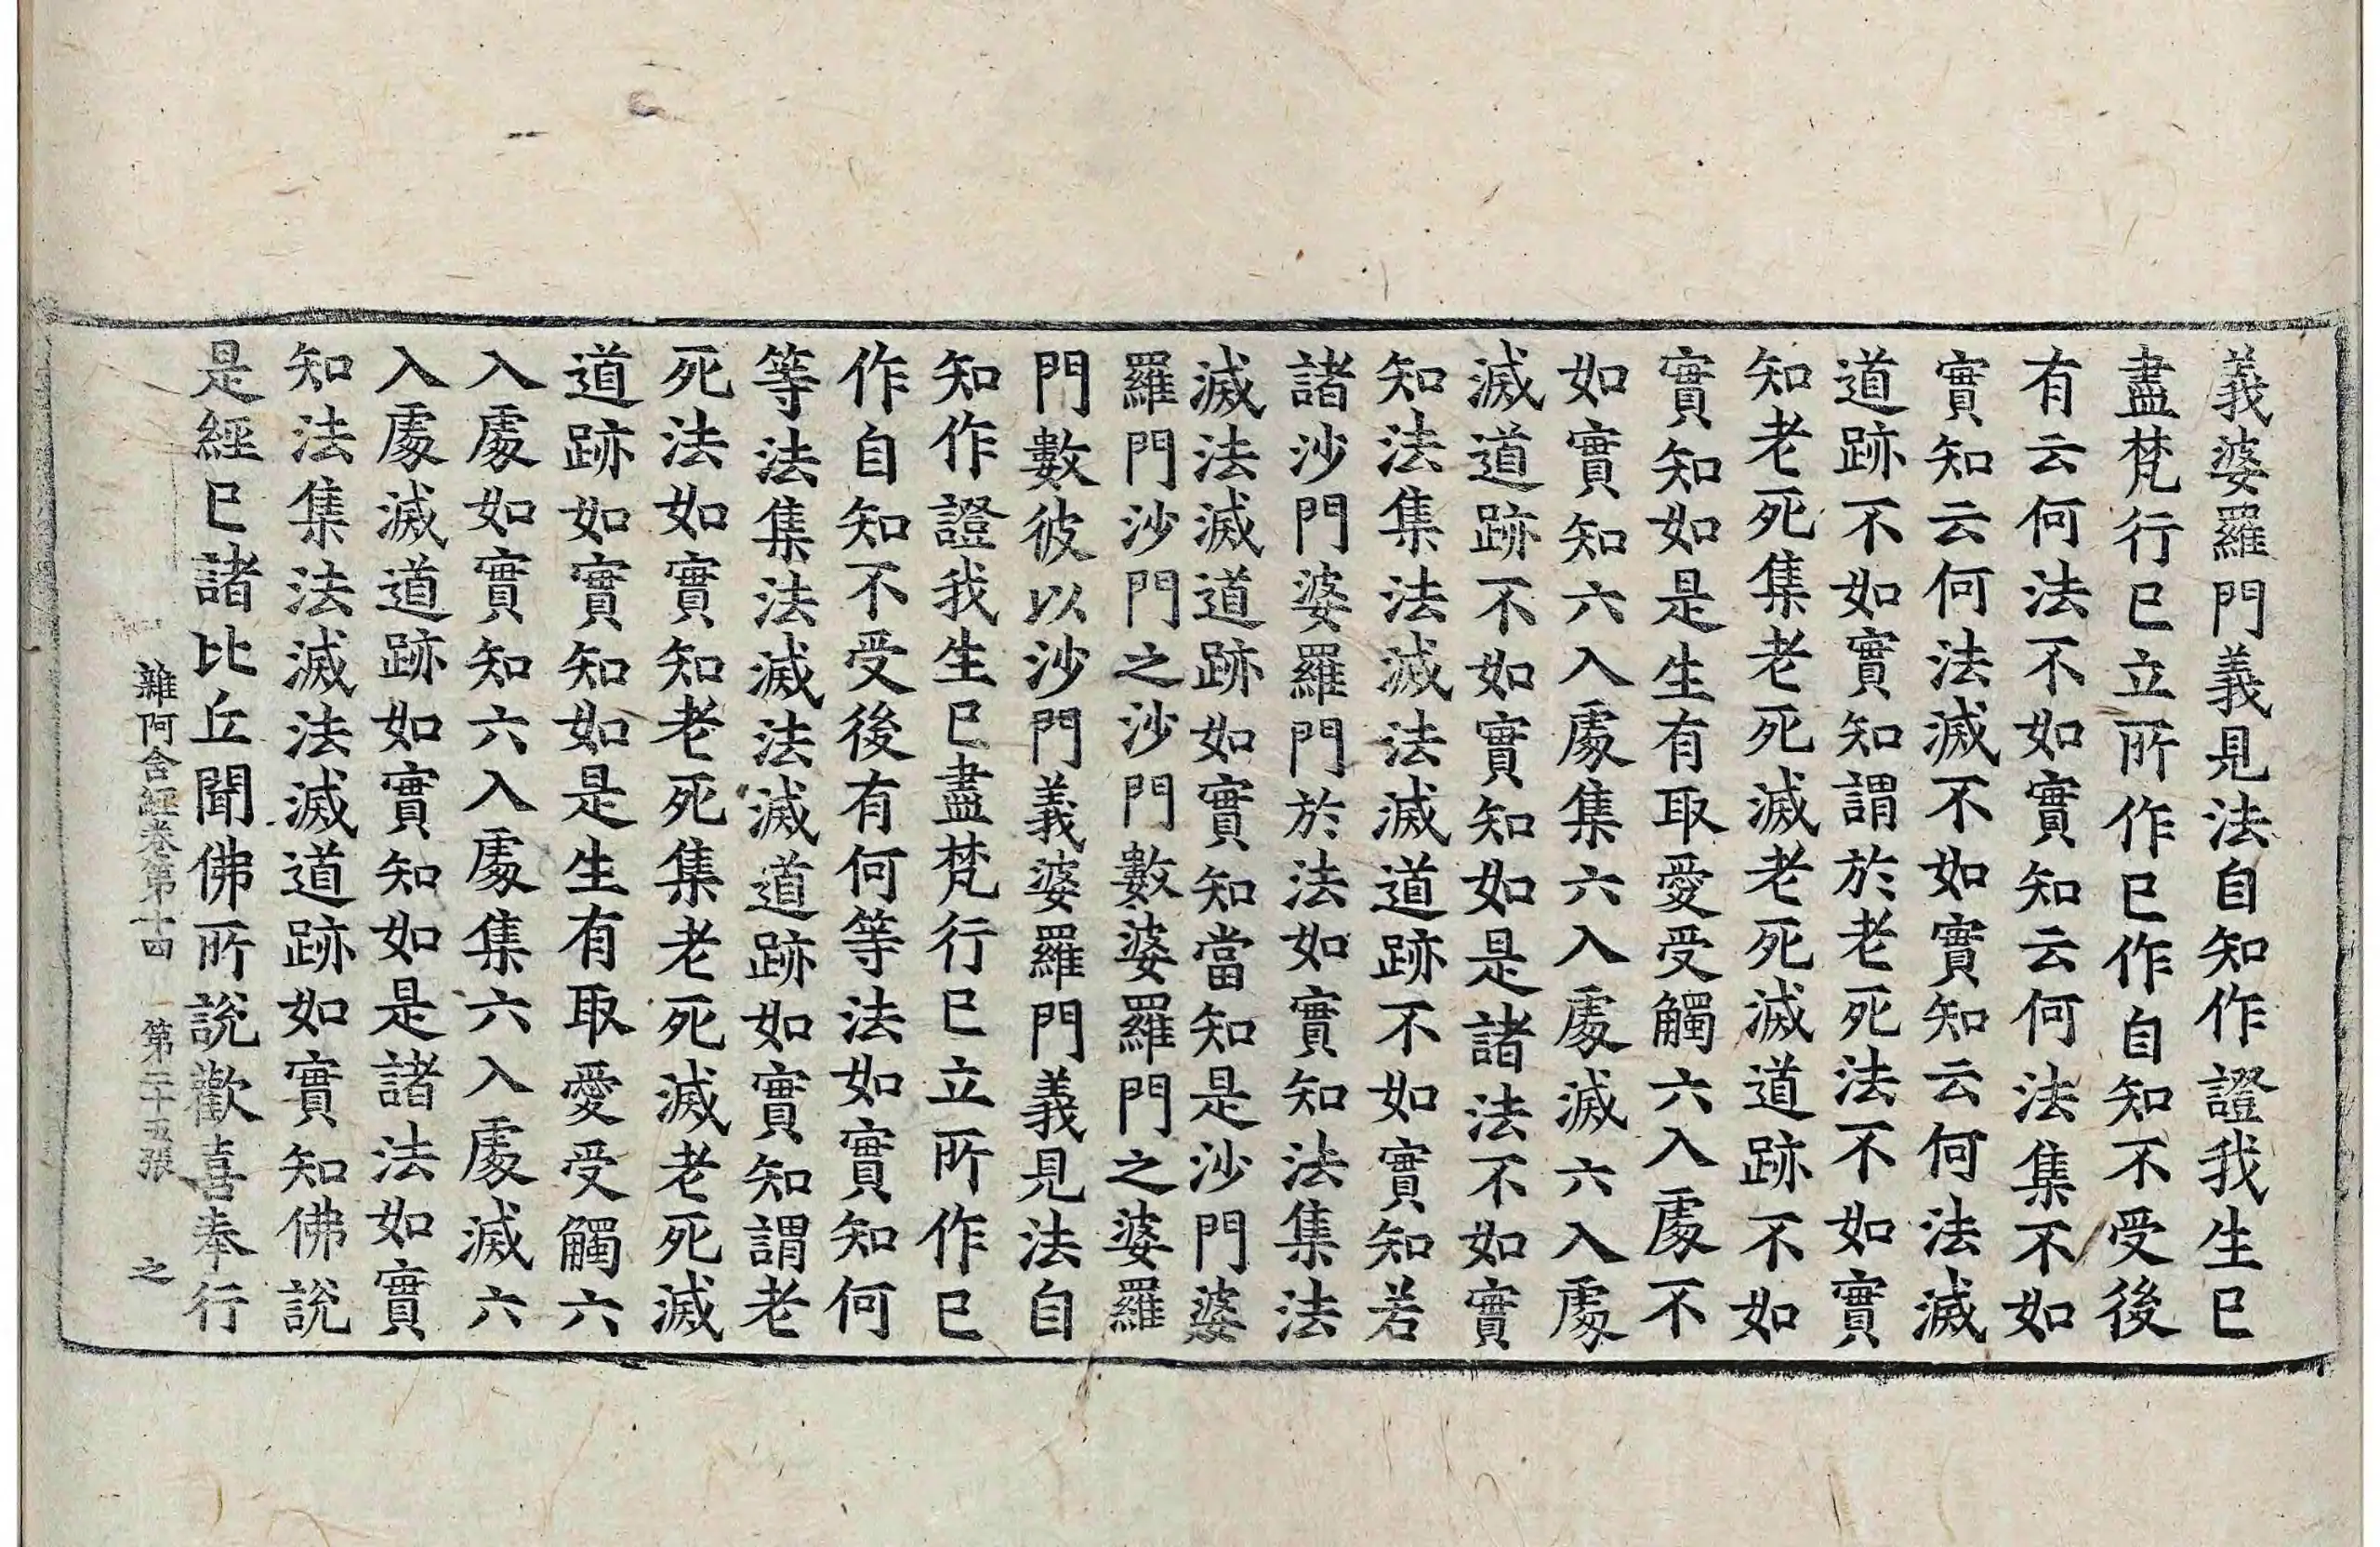 義婆羅門義見法自知作證我生已
盡梵行已立所作已作自知不受後
有云何法不如實知云何法集不如
實知云何法滅不如實知云何法滅
道跡不如實知謂於老死法不如實
知老死集老死滅老死滅道跡不如
實知如是生有取愛受觸六入處不
如實知六入處集六入處滅六入處
滅道跡不如實知如是諸法不如實
知法集法滅法滅道跡不如實知若
諸沙門婆羅門於法如實知法集法
滅法滅道跡如實知當知是沙門婆
羅門沙門之沙門數婆羅門之婆羅
門數彼以沙門義婆羅門義見法自
知作證我生已盡梵行已立所作已
作自知不受後有何等法如實知何
等法集法滅法滅道跡如實知謂老
死法如實知老死集老死滅老死滅
道跡如實知如是生有取愛受觸六
入處如實知六入處集六入處滅六
入處滅道跡如實知如是諸法如實
知法集法滅法滅道跡如實知佛說
是經已諸比丘聞佛所說歡喜奉行
雜阿含經卷第十四 第二十五張 之